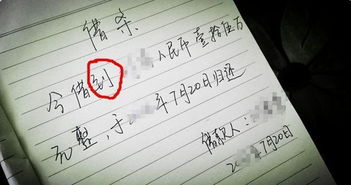 借条
今借到 人民币壹拾伍万
元整,于 年7月20日归还
借款人:
20 年7月20日